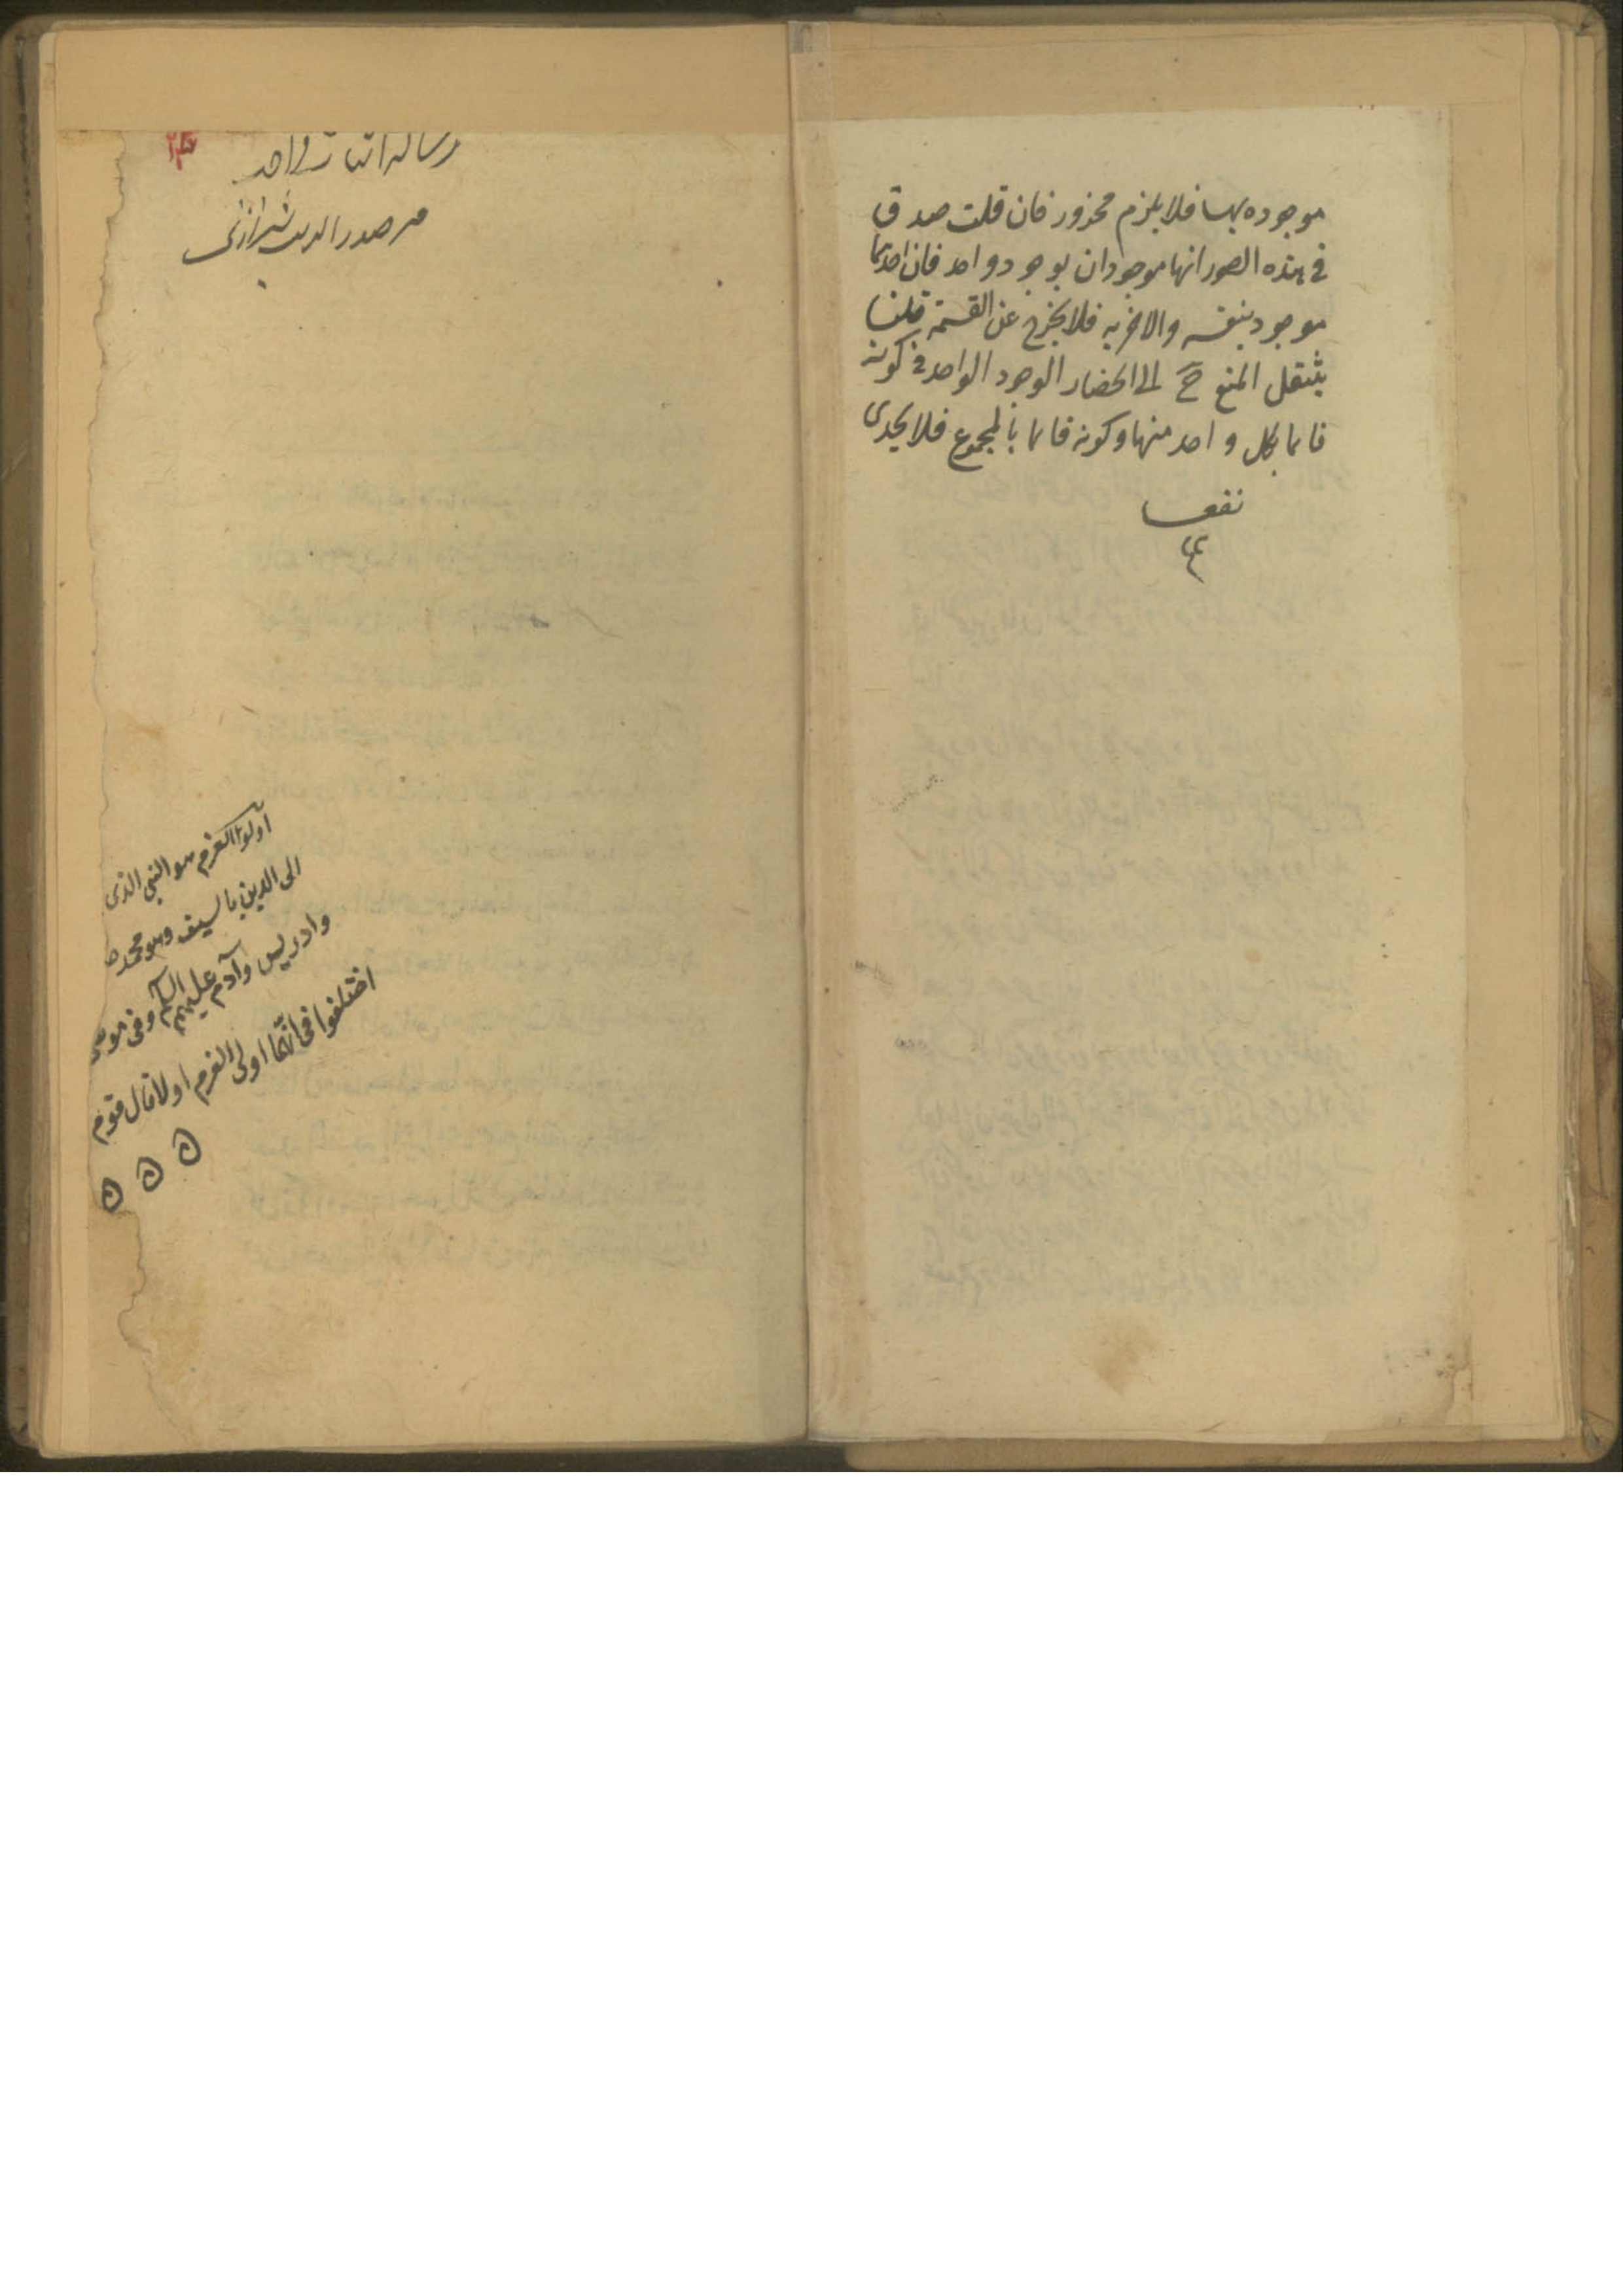 موجوده بها فلا يلزم محذور فان قلت صدق
فى هذه الصور انهما موجودان بوجود واحد فان احدهما
موجود بنفسه والاخر به فلا يخرج عن القسمة قلنا
ينتقل المنع ح الى انحصار الوجود الواحد فى كونه
قائما بكل واحد منهما وكونه قائما بالمجموع فلا يجدى
نفعا
رساله اثبات واجد
صدر الدين شيرازى
اولوا العزم هو النبى الذى
الى الدين بالسيف وهو محمد ص
وادريس وآدم عليهم السلام وفى موسى
اختلفوا فى انهما اولى العزم اولا قال قوم
ه ه ه